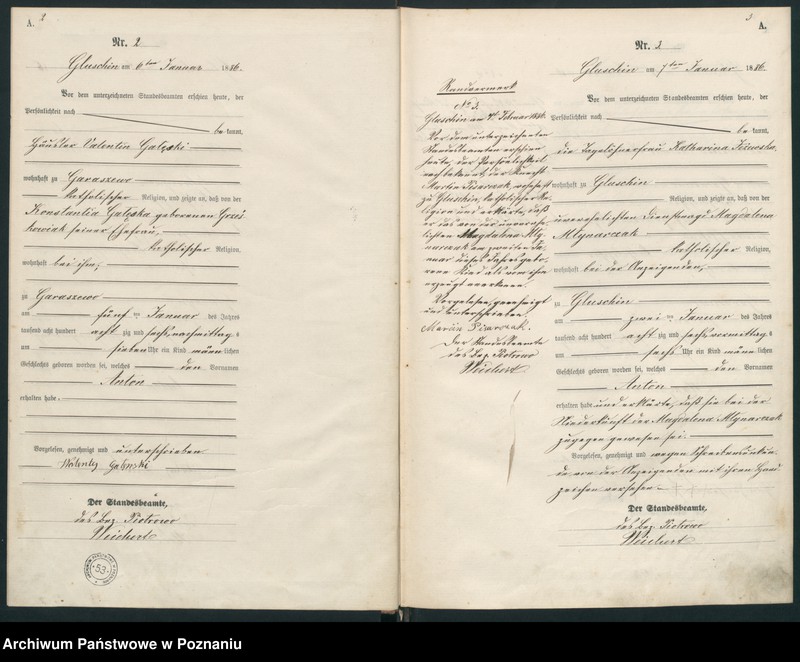 A.
2
Nr. 2
Gluschin am 6ten Januar 1886.
Vor dem unterzeichneten Standesbeamten erschien heute, der
Persönlichkeit nach
be kannt,
Häusler Valentin Galęski
wohnhaft zu Garaszewo
katholischer Religion, und zeigte an, daß von der
Konstantia Galęska geborenen
seiner Ehefrau,
katholischer Religion,
wohnhaft bei ihm,
zu Garaszewo
am fünf ten Januar des Jahres
tausend acht hundert acht zig und sechs, nachmittags
um sieben Uhr ein Kind männlichen
Geschlechts geboren worden sei, welches den Vornamen
Anton
erhalten habe.
Vorgelesen, genehmigt und unterschrieben
Walenty Galęnski
Der Standesbeamte,
des Bez. Piotrowo
Weichert
53
3
A.
Nr. 3
Gluschin am 7ten Januar 1886.
Vor dem unterzeichneten Standesbeamten erschien heute, der
Persönlichkeit nach
be kannt,
die Tagelöhnerfrau Katharina
wohnhaft zu Gluschin
Religion, und zeigte an, daß von der
unverehelichten Dienstmagd Magdalena
Mlynarczak
katholischer Religion,
wohnhaft bei der Anzeigenden,
zu Gluschin
am zwei ten Januar des Jahres
tausend acht hundert acht zig und sechs vormittags
um sechs Uhr ein Kind männlichen
Geschlechts geboren worden sei, welches den Vornamen
Anton
erhalten habe und erklärte, daß sie bei der
Niederkunft der Magdalena Mlynarczak
zugegen gewesen sei.
Vorgelesen, genehmigt und wegen Schreibensunkun
de von der Anzeigenden mit ihren Hand
zeichen versehen.
Der Standesbeamte,
des Bez. Piotrowo
Weichert
Randvermerk
No 3.
Gluschin am Februar 1886.
Vor dem unterzeichneten
Standesbeamten erschien
heute, der Persönlichkeit
nach bekannt, der Knecht
Martin Pisarczak, wohnhaft
zu Gluschin, katholischer Re-
ligion und erklärte, daß
er das von der unverehe-
lichten Magdalena Mly-
narczak am zweiten Ja-
nuar dieses Jahres gebo-
rene Kind als von ihm
erzeugt anerkenne.
Vorgelesen, genehmigt
und unterschrieben.
Marcin Pisarczak.
Der Standesbeamte
des Bez. Piotrowo
Weichert
Archiwum Państwowe w Poznaniu